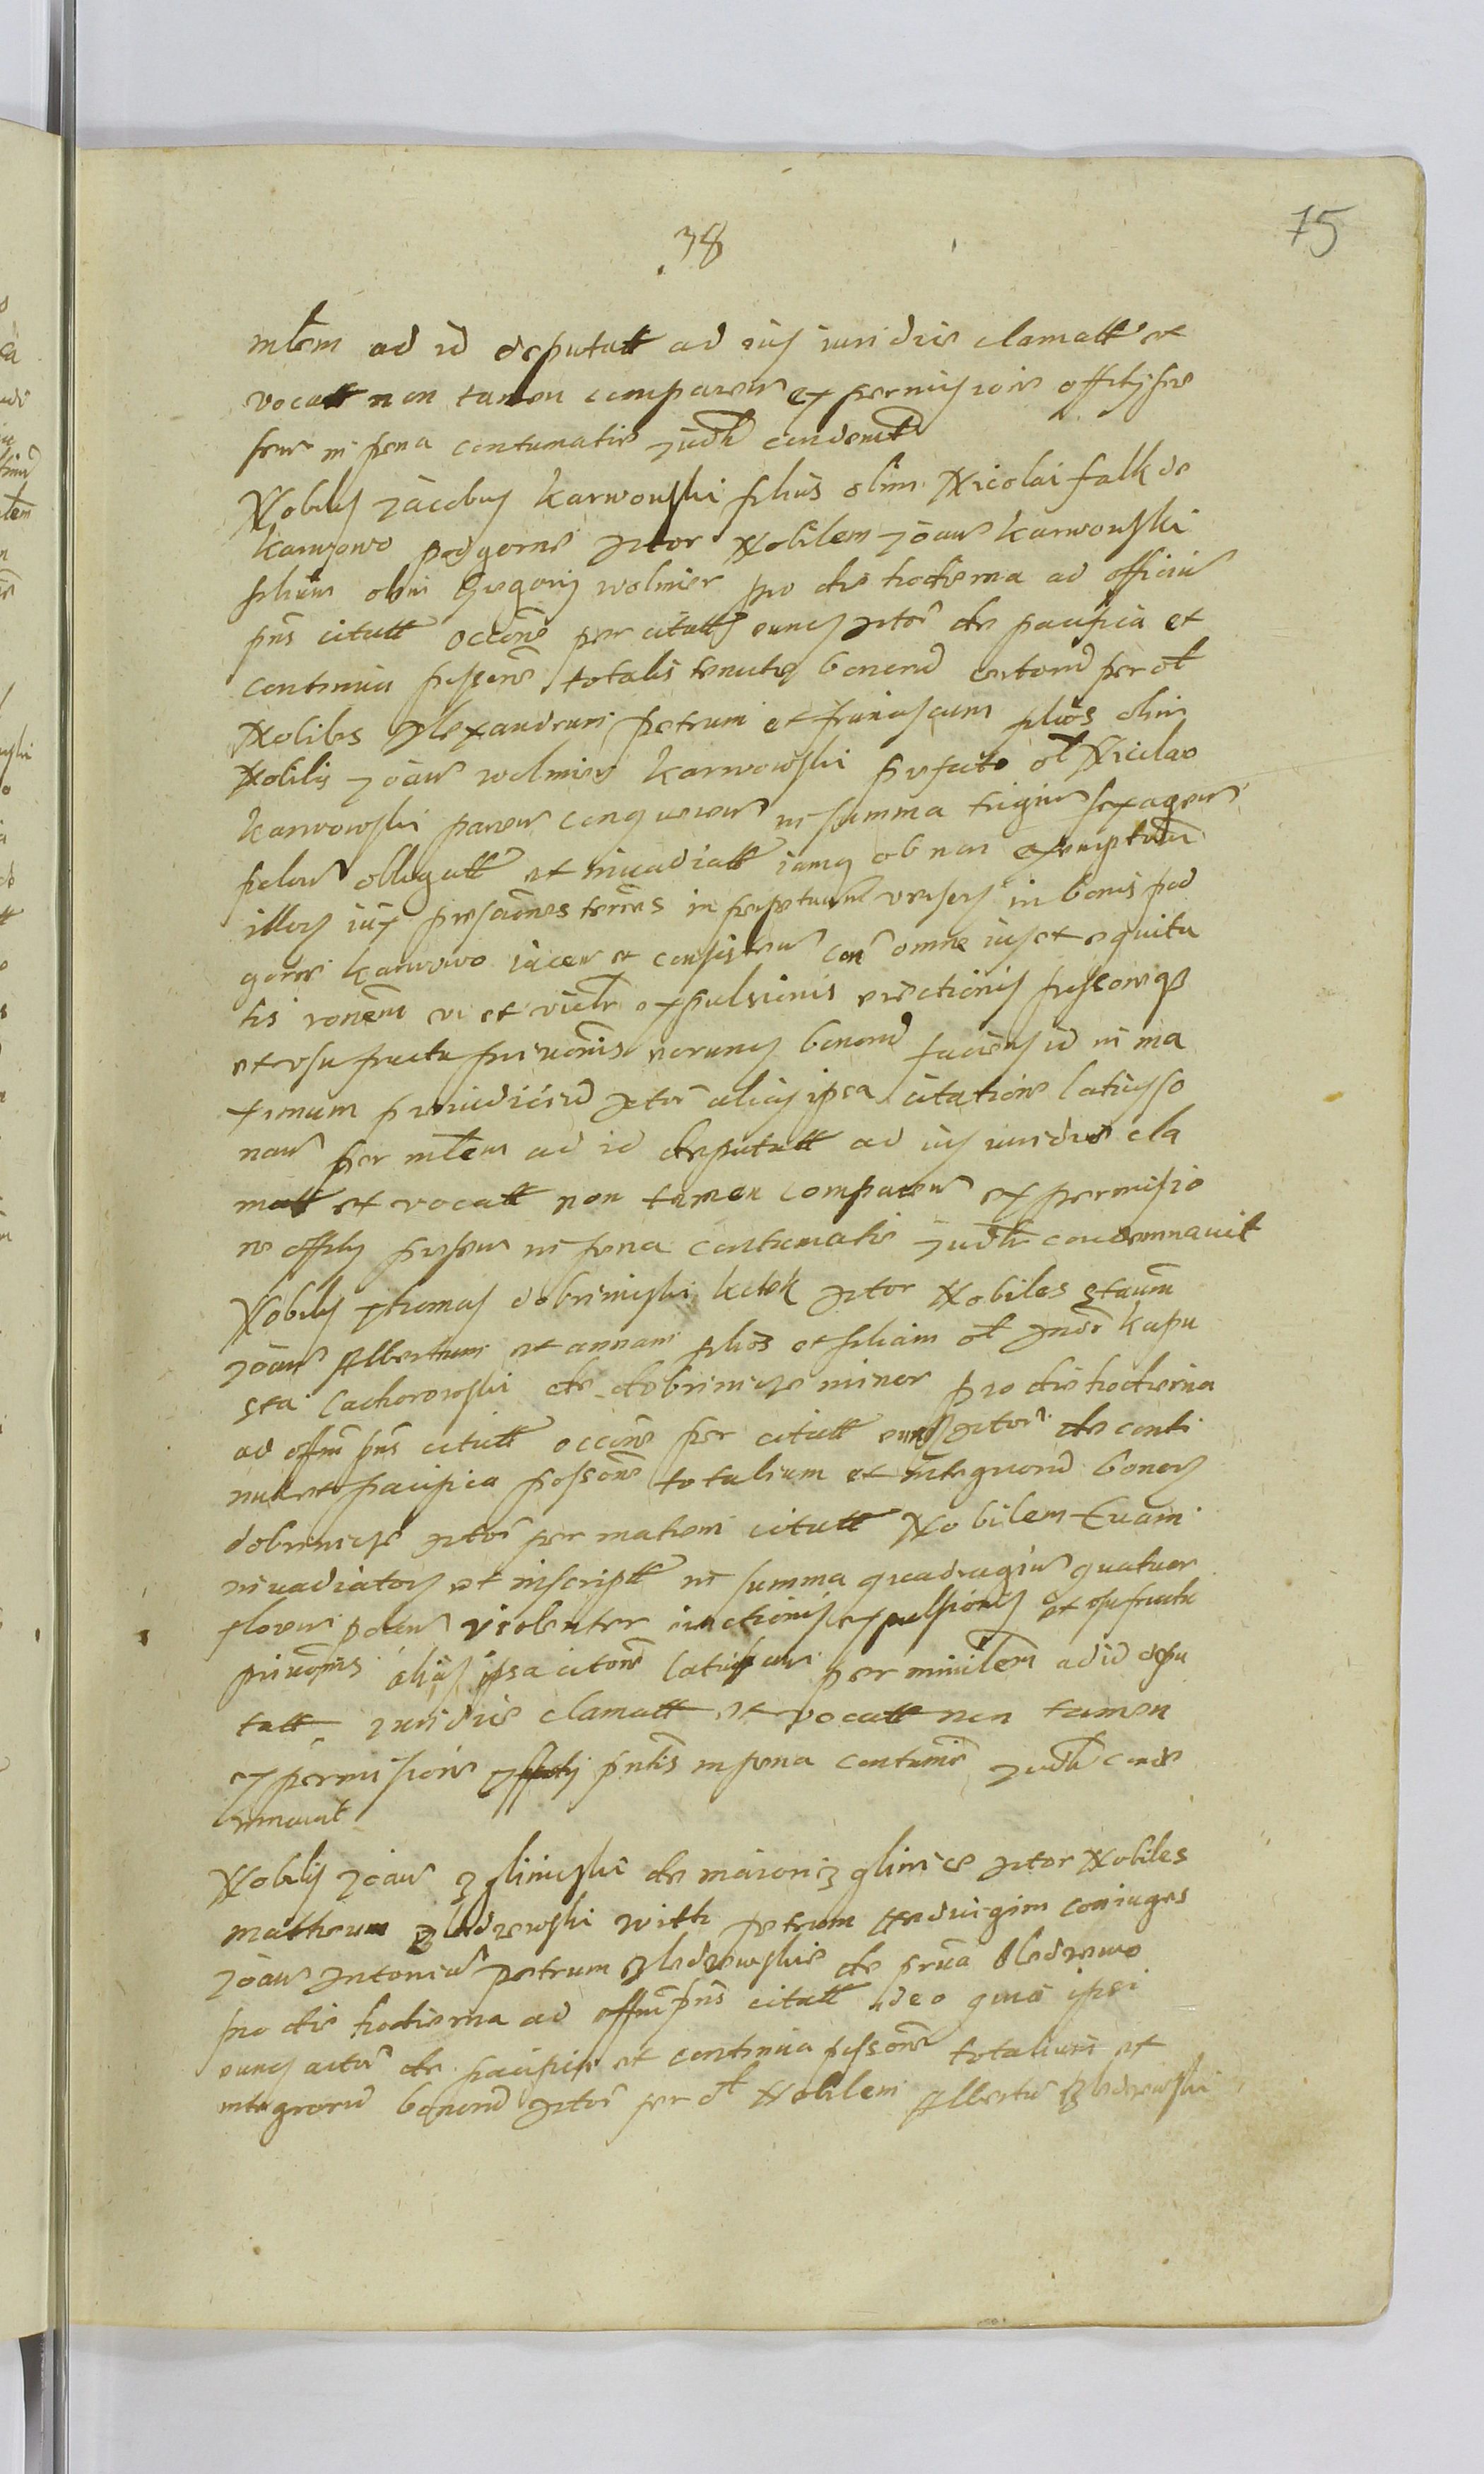 75
38
mlem ad id deputatt ad ius iuridice clamatt et
vocatt non tamen comparen ex permissione officii pre
sen in pena contumatie judli condemt
Nobilis Jacobus Karwowski filius olim Nicolai falk de
Karwowo podgorne Actor Nobilem Joan Karwowski
filium olim Gregorii wolmier pro die hodierna ad officiu
pns citatt occone per citatt euncs Actor de pacifica et
continua possone totalis tenute bonord per ol
Nobiles Alexandrum petrum et franciscum filios olim
Nobilis Joan wolmier Karwowski prefato ol Nicolao
Karwowski in summa trigin sexagen
polon obligatt et invadiatt iamq ob non exemptum
illorum iux prescriones terrres in perpetuum in bonis pod
gorne Karwowo iacen et consisten con omne ius et equita
tis ronem vi et violr expulsionis eiectionis possoneqz
et usufructu privonis eorunq bonord faciens id in ma
ximum preiudiciud Actor alias ipsa citatione latius so
nan per mlem ad id deputatt ad ius iuridice cla
matt et vocatt non tamen comparen ex permissio
ne officii presen in pena contumatie judli condemnavit
Nobilis Thomas dobrnicski Actor Nobiles staum
Joan Albertum et annam filios et filiam ol Kapu
sta Cachorowski de dobrnicze minor pro die hodierna
ad offiu pns citatt occone per citatt Actor de conti
nua et pacifica possone totalium et integrorud bonorum
dobrnicze Actor per matrem citatt Nobilem Evam
invadiatorum et inscriptt in summa quadragin quatuor
floren polon violenter eiectionis expulsionis et usufructu
privonis alias ipsa citatone latius per minilem ad id depu
tatt juridice clamatt et vocatt non tamen
ex permissione officii pntis in pena contumie judli conde
mnavit
Nobilis Joan glinicski de maiori glinice Actor Nobiles
matheum with petrum Hedvigim coniuges
Joan Antoniu petrum de
pro die hodierna ad offiu pns citatt ideo quia ipsi
euncs actor de pacifica et continua possone totalium et
integrorud bonord Actor per ol Nobilem Albertu